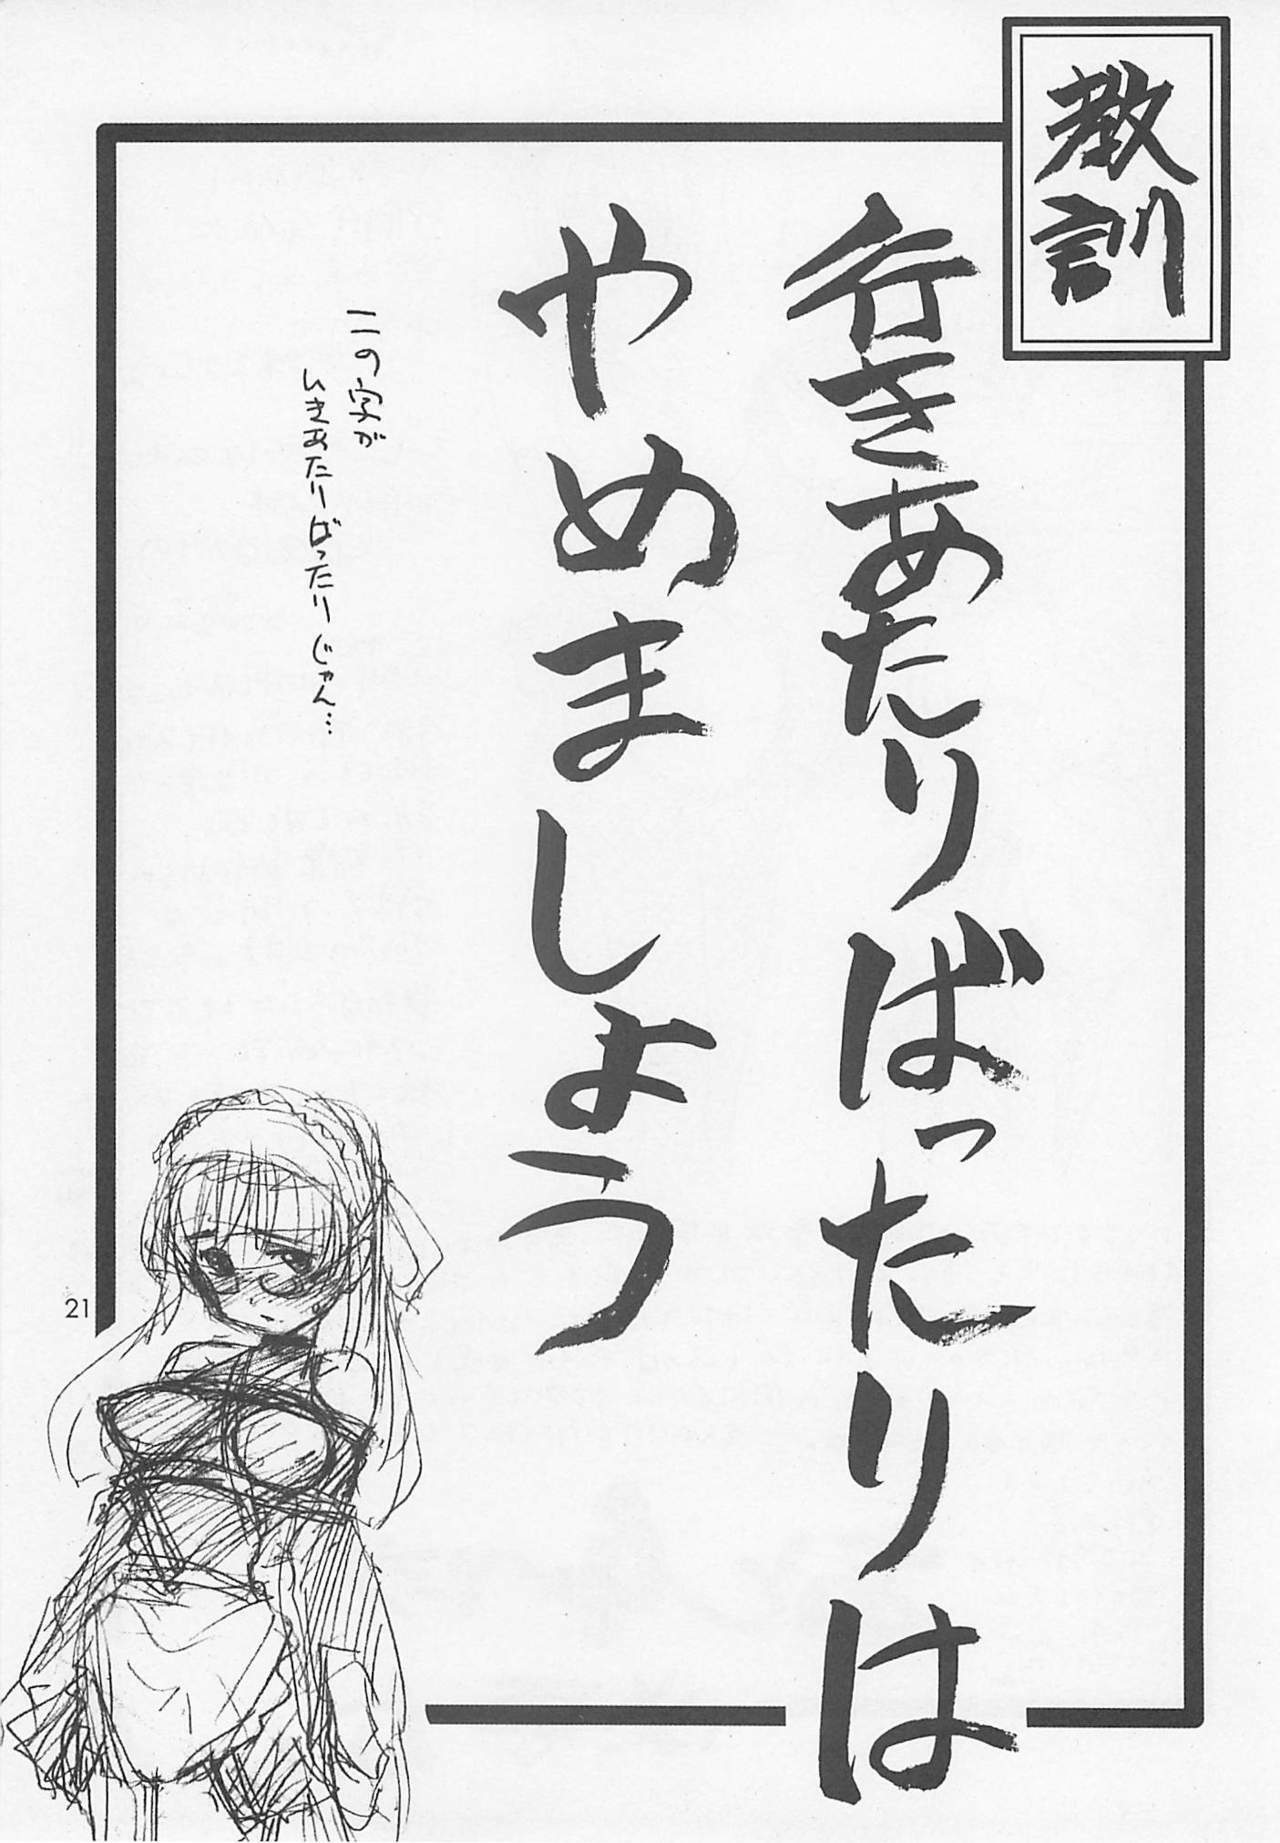 教訓
行きあたりばったりは
やめましょう
この字が
いきあたりばったりじゃん…
21